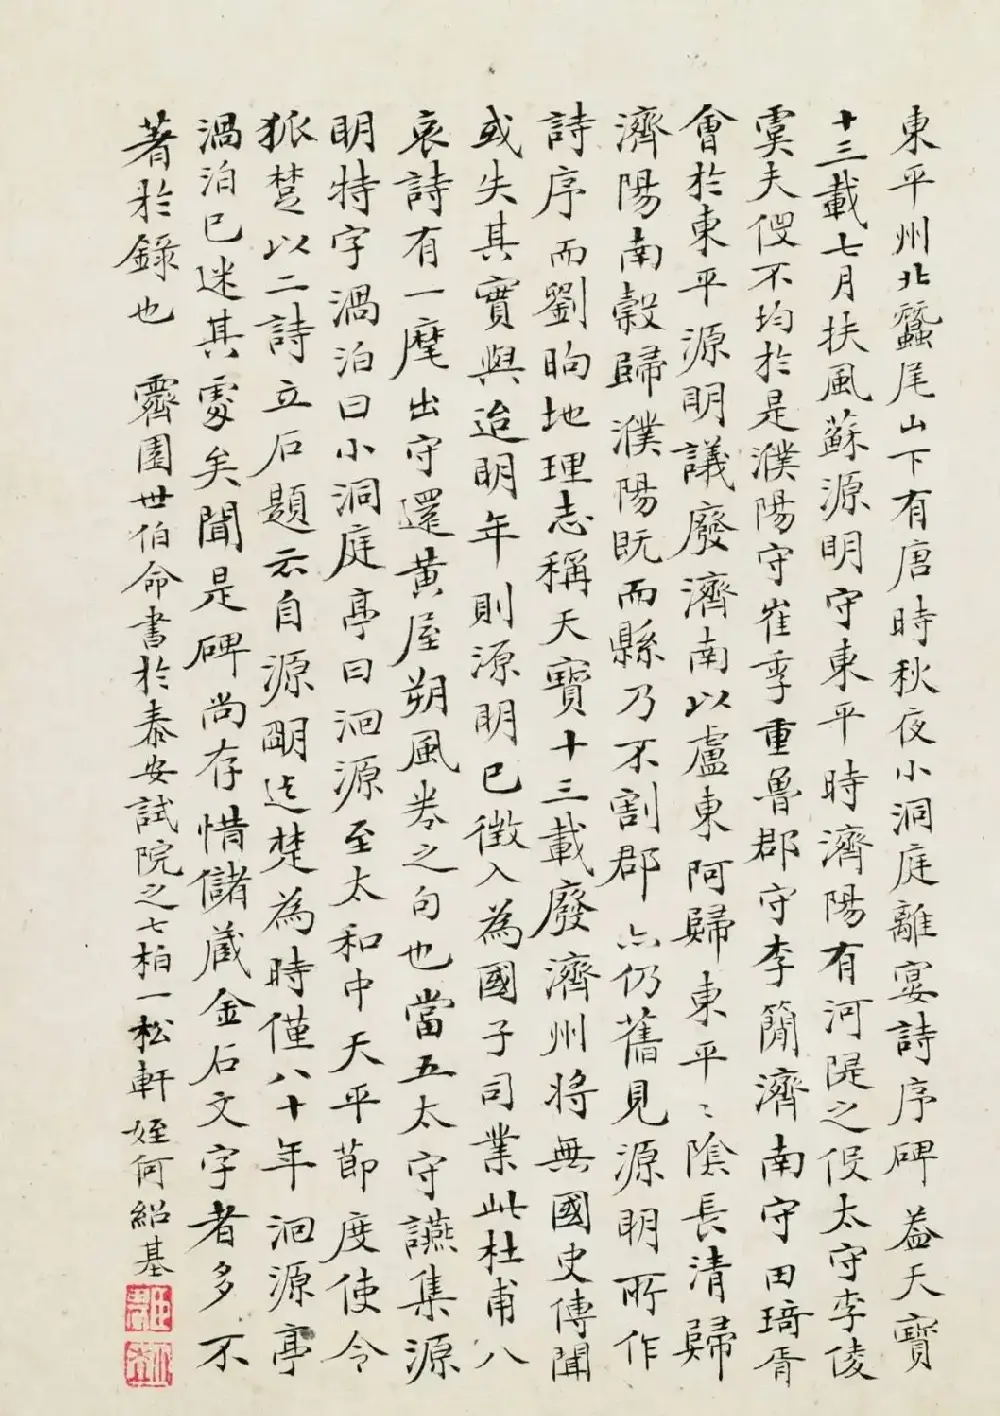 東平州北蠶尾山下有唐時秋夜小洞庭離宴詩序碑益天寶
十三載七月扶風蘇源明守東平時濟陽有河隄之役太守李倰
虞夫役不均於是濮陽守崔季重魯郡守李簡濟南守田琦胥
會於東平源明議廢濟南以盧東阿歸東平〻陰長清歸
濟陽南穀歸濮陽既而縣乃不割郡亦仍舊見源明所作
詩序而劉昫地理志稱天寶十三載廢濟州將無國史傳聞
或失其實與迨明年則源明已徵入為國子司業此杜甫八
哀詩有一麾出守還黃屋朔風卷之句也當五太守讌集源
明特字渦泊曰小洞庭亭曰洄源至太和中天平節度使令
狐楚以二詩立石題云自源明迄楚為時僅八十年洄源亭
渦泊已迷其處矣聞是碑尚存惜儲藏金石文字者多不
著於錄也 霽園世伯命書於泰安試院之七柏一松軒姪何紹基